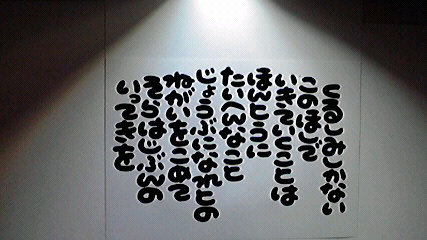 くるしみしかない
このほしで
いきていくことは
ほんとうに
たいへんなこと
じょうぶになれとの
ねがいをこめて
そらはじぶんの
いってきを